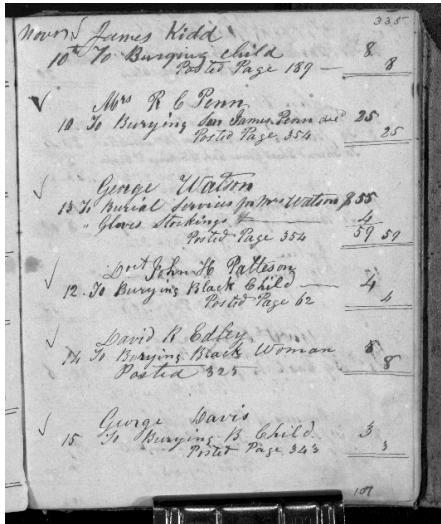 335
Novr James Kidd
10th To Burying Child 8
Posted Page 189 — 8
Mrs R C Penn
10 To Burying Son James Penn decd 25
Posted Page 354 25
George Watson
13 To Burial Services for Mrs Watson $55
" Gloves Stockings & — 4
Posted Page 354 59 59
Doct John H Patteson
12. To Burying Black Child — 4
Posted Page 62 4
David R Edley
14 To Burying Black Woman 8
Posted 325 8
George Davis
15 To Burying B Child 3
Posted Page 343 3
107